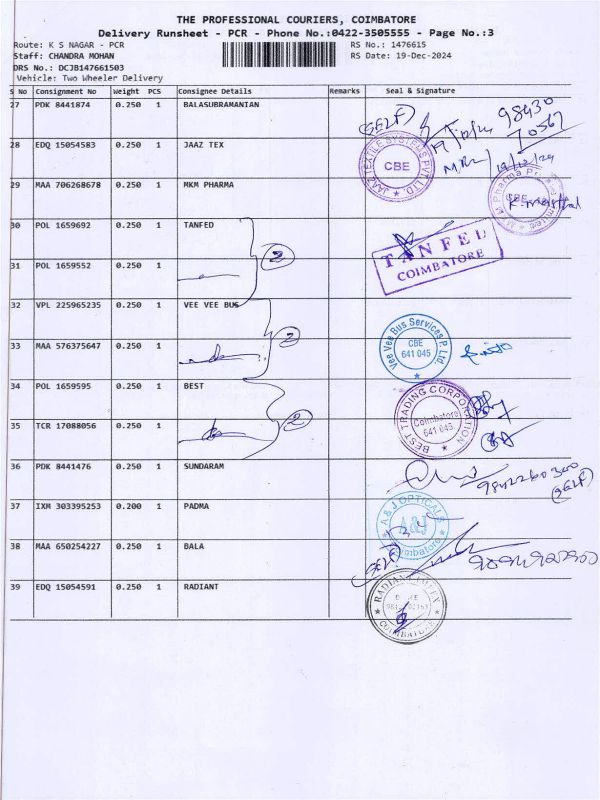 THE PROFESSIONAL COURIERS, COIMBATORE
Delivery Runsheet - PCR - Phone No.:0422-3505555 - Page No.:3
Route: K S NAGAR - PCR
RS No.: 1476615
Staff: CHANDRA MOHAN
RS Date: 19-Dec-2024
DRS No.: DCJB147661503
Vehicle: Two Wheeler Delivery
S No Consignment No Weight PCS Consignee Details Remarks Seal & Signature
27 PDK 8441874 0.250 1 BALASUBRAMANIAN
(SELF)
98430
70567
28 EDQ 15054583 0.250 1 JAAZ TEX
JAAZ TEXTILE SYSTEMS PVT LTD
CBE
19/12/24
29 MAA 706268678 0.250 1 MKM PHARMA
30 POL 1659692 0.250 1 TANFED
2
TANFED
COIMBATORE
31 POL 1659552 0.250 1
32 VPL 225965235 0.250 1 VEE VEE BUS
2
Vee Vee Bus Services P. Ltd.
CBE
641 045
33 MAA 576375647 0.250 1
34 POL 1659595 0.250 1 BEST
2
BEST TRADING CORPORATION
Coimbatore
641 045
35 TCR 17088056 0.250 1
36 PDK 8441476 0.250 1 SUNDARAM
(SELF)
37 IXM 303395253 0.200 1 PADMA
A & J OPTICALS
A&J
Coimbatore
38 MAA 650254227 0.250 1 BALA
(SELF)
39 EDQ 15054591 0.250 1 RADIANT
COIMBATORE